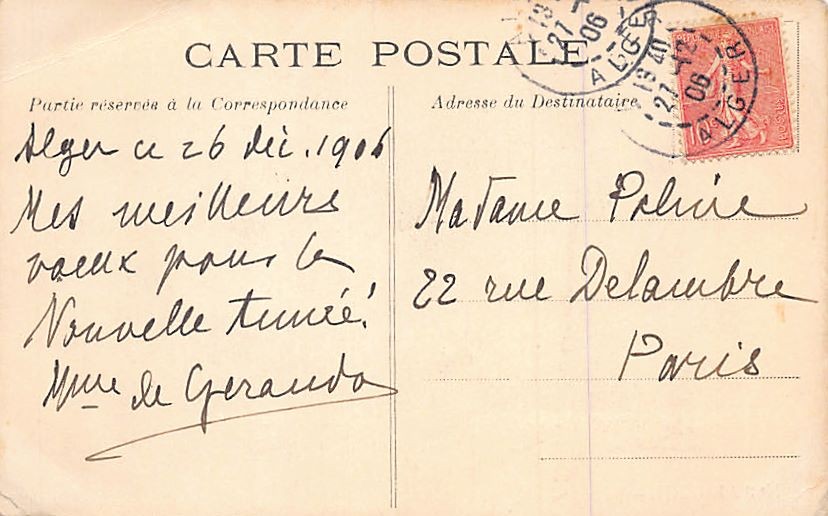 CARTE POSTALE
Partie réservée à la Correspondance
Adresse du Destinataire
Alger ce 26 déc. 1906
Mes meilleurs
voeux pour la
Nouvelle Année!
Mme de Gerando
Madame
22 rue Delambre
Paris
13 40
27 -12
06
ALGER
13
27
06
ALGER